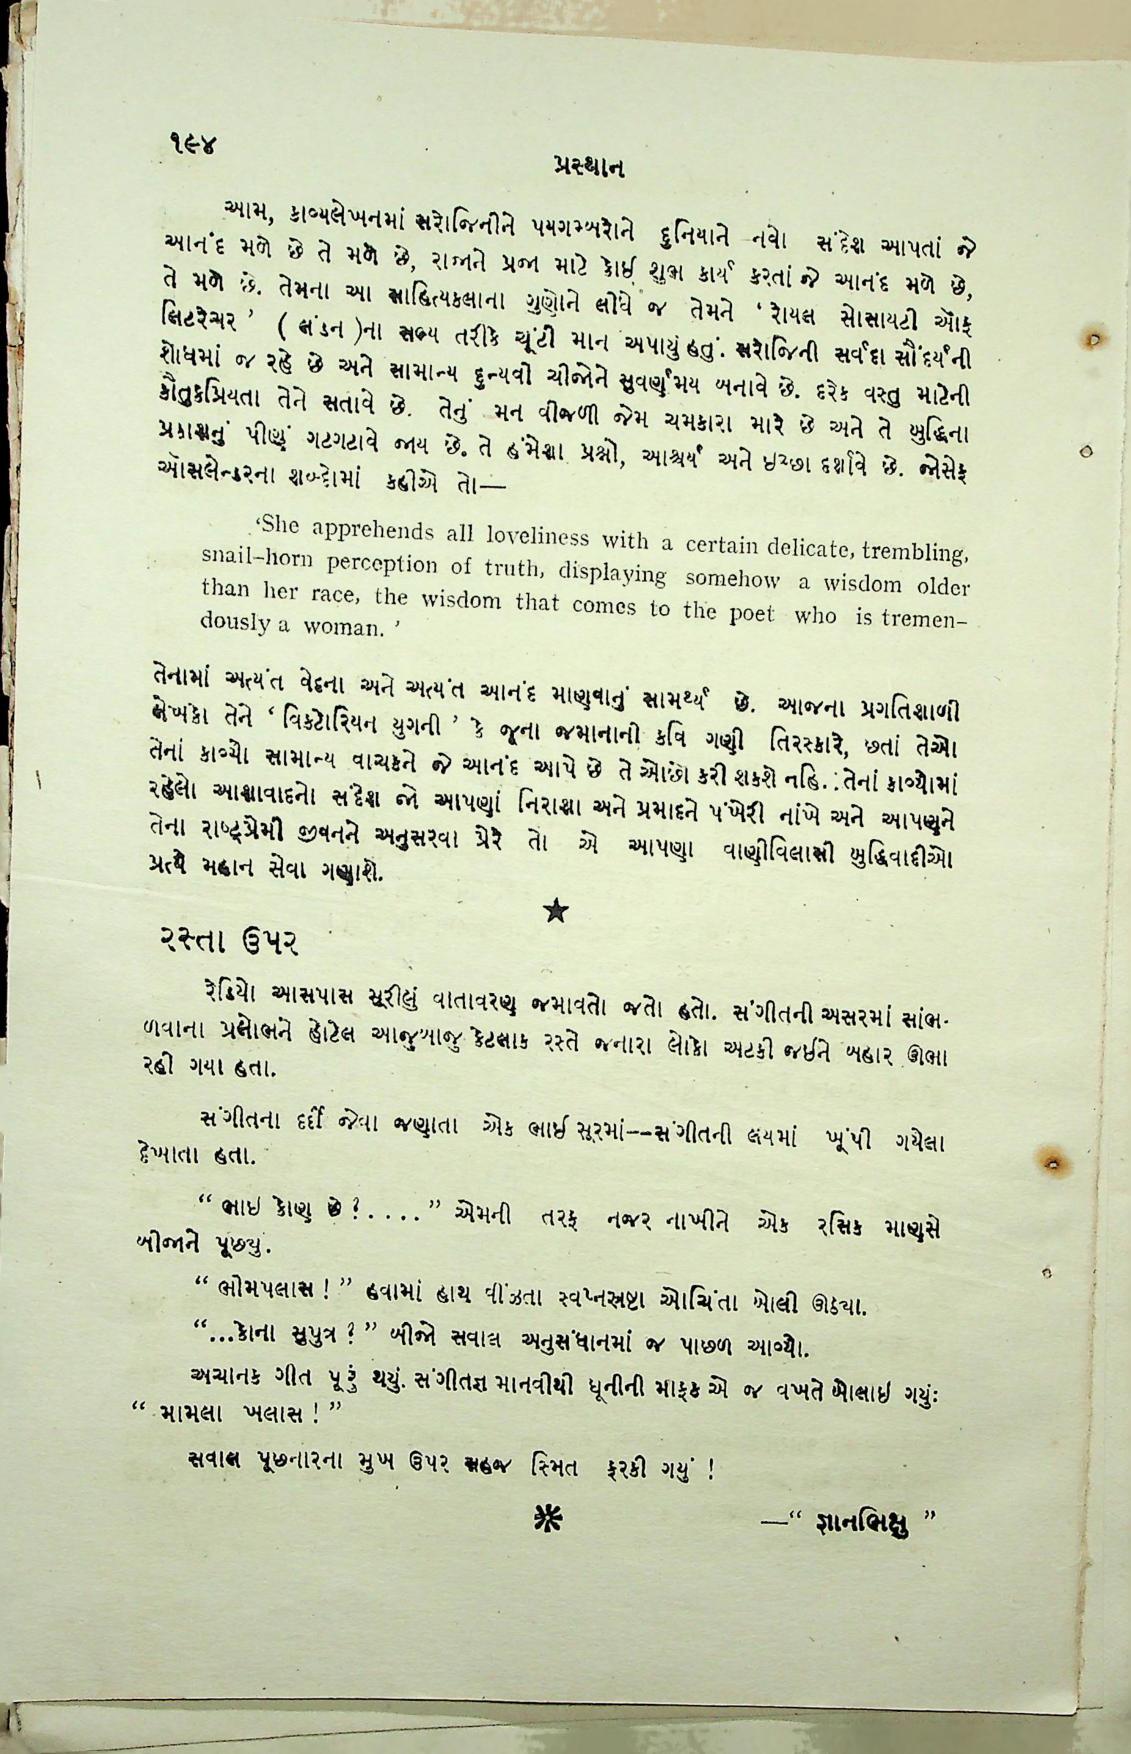 ૧૯૪
પ્રસ્થાન
આમ, કાવ્યલેખનમાં સરોજિનીને પયગમ્બરોને દુનિયાને નવો સંદેશ આપતાં જે
આનંદ મળે છે તે મળે છે, રાજાને પ્રજા માટે કોઈ શુભ કાર્ય કરતાં જે આનંદ મળે છે,
તે મળે છે. તેમના આ સાહિત્યકલાના ગુણોને લીધે જ તેમને ‘ રોયલ સોસાયટી ઑફ
લિટરેચર ’ ( લંડન )ના સભ્ય તરીકે ચૂંટી માન અપાયું હતું. સરોજિની સર્વદા સૌંદર્યની
શોધમાં જ રહે છે અને સામાન્ય દુન્યવી ચીજોને સુવર્ણમય બનાવે છે. દરેક વસ્તુ માટેની
કૌતુકપ્રિયતા તેને સતાવે છે. તેનું મન વીજળી જેમ ચમકારા મારે છે અને તે બુદ્ધિના
પ્રકાશનું પીણું ગટગટાવે જાય છે. તે હંમેશા પ્રશ્નો, આશ્ચર્ય અને ઇચ્છા દર્શાવે છે. જોસેફ
ઑસલેન્ડરના શબ્દોમાં કહીએ તો—
‘She apprehends all loveliness with a certain delicate, trembling,
snail-horn perception of truth, displaying somehow a wisdom older
than her race, the wisdom that comes to the poet who is tremen-
dously a woman. ’
તેનામાં અત્યંત વેદના અને અત્યંત આનંદ માણવાનું સામર્થ્ય છે. આજના પ્રગતિશાળી
લેખકો તેને ‘ વિકટોરિયન યુગની ’ કે જૂના જમાનાની કવિ ગણી તિરસ્કારે, છતાં તેઓ
તેનાં કાવ્યો સામાન્ય વાચકને જે આનંદ આપે છે તે ઓછો કરી શકશે નહિ. તેનાં કાવ્યોમાં
રહેલો આશાવાદનો સંદેશ જો આપણાં નિરાશા અને પ્રમાદને પંખેરી નાંખે અને આપણને
તેના રાષ્ટ્રપ્રેમી જીવનને અનુસરવા પ્રેરે તો એ આપણા વાણીવિલાસી બુદ્ધિવાદીઓ
પ્રત્યે મહાન સેવા ગણાશે.
★
રસ્તા ઉપર
રેડિયો આસપાસ સૂરીલું વાતાવરણ જમાવતો જતો હતો. સંગીતની અસરમાં સાંભ-
ળવાના પ્રલોભને હોટેલ આજુબાજુ કેટલાક રસ્તે જનારા લોકો અટકી જઈને બહાર ઊભા
રહી ગયા હતા.
સંગીતના દર્દી જેવા જણાતા એક ભાઈ સૂરમાં--સંગીતની લયમાં ખૂંપી ગયેલા
દેખાતા હતા.
“ ભાઇ કોણ છે?.... ” એમની તરફ નજર નાખીને એક રસિક માણસે
બીજાને પૂછ્યું.
“ ભીમપલાસ ! ” હવામાં હાથ વીંઝતા સ્વપ્નસ્રષ્ટા ઓચિંતા બોલી ઊઠ્યા.
“...કોના સુપુત્ર ? ” બીજો સવાલ અનુસંધાનમાં જ પાછળ આવ્યો.
અચાનક ગીત પૂરું થયું. સંગીતજ્ઞ માનવીથી ધૂનીની માફક એ જ વખતે બોલાઇ ગયું:
“ મામલા ખલાસ ! ”
સવાલ પૂછનારના મુખ ઉપર સહજ સ્મિત ફરકી ગયું !
—“ જ્ઞાનભિક્ષુ ”